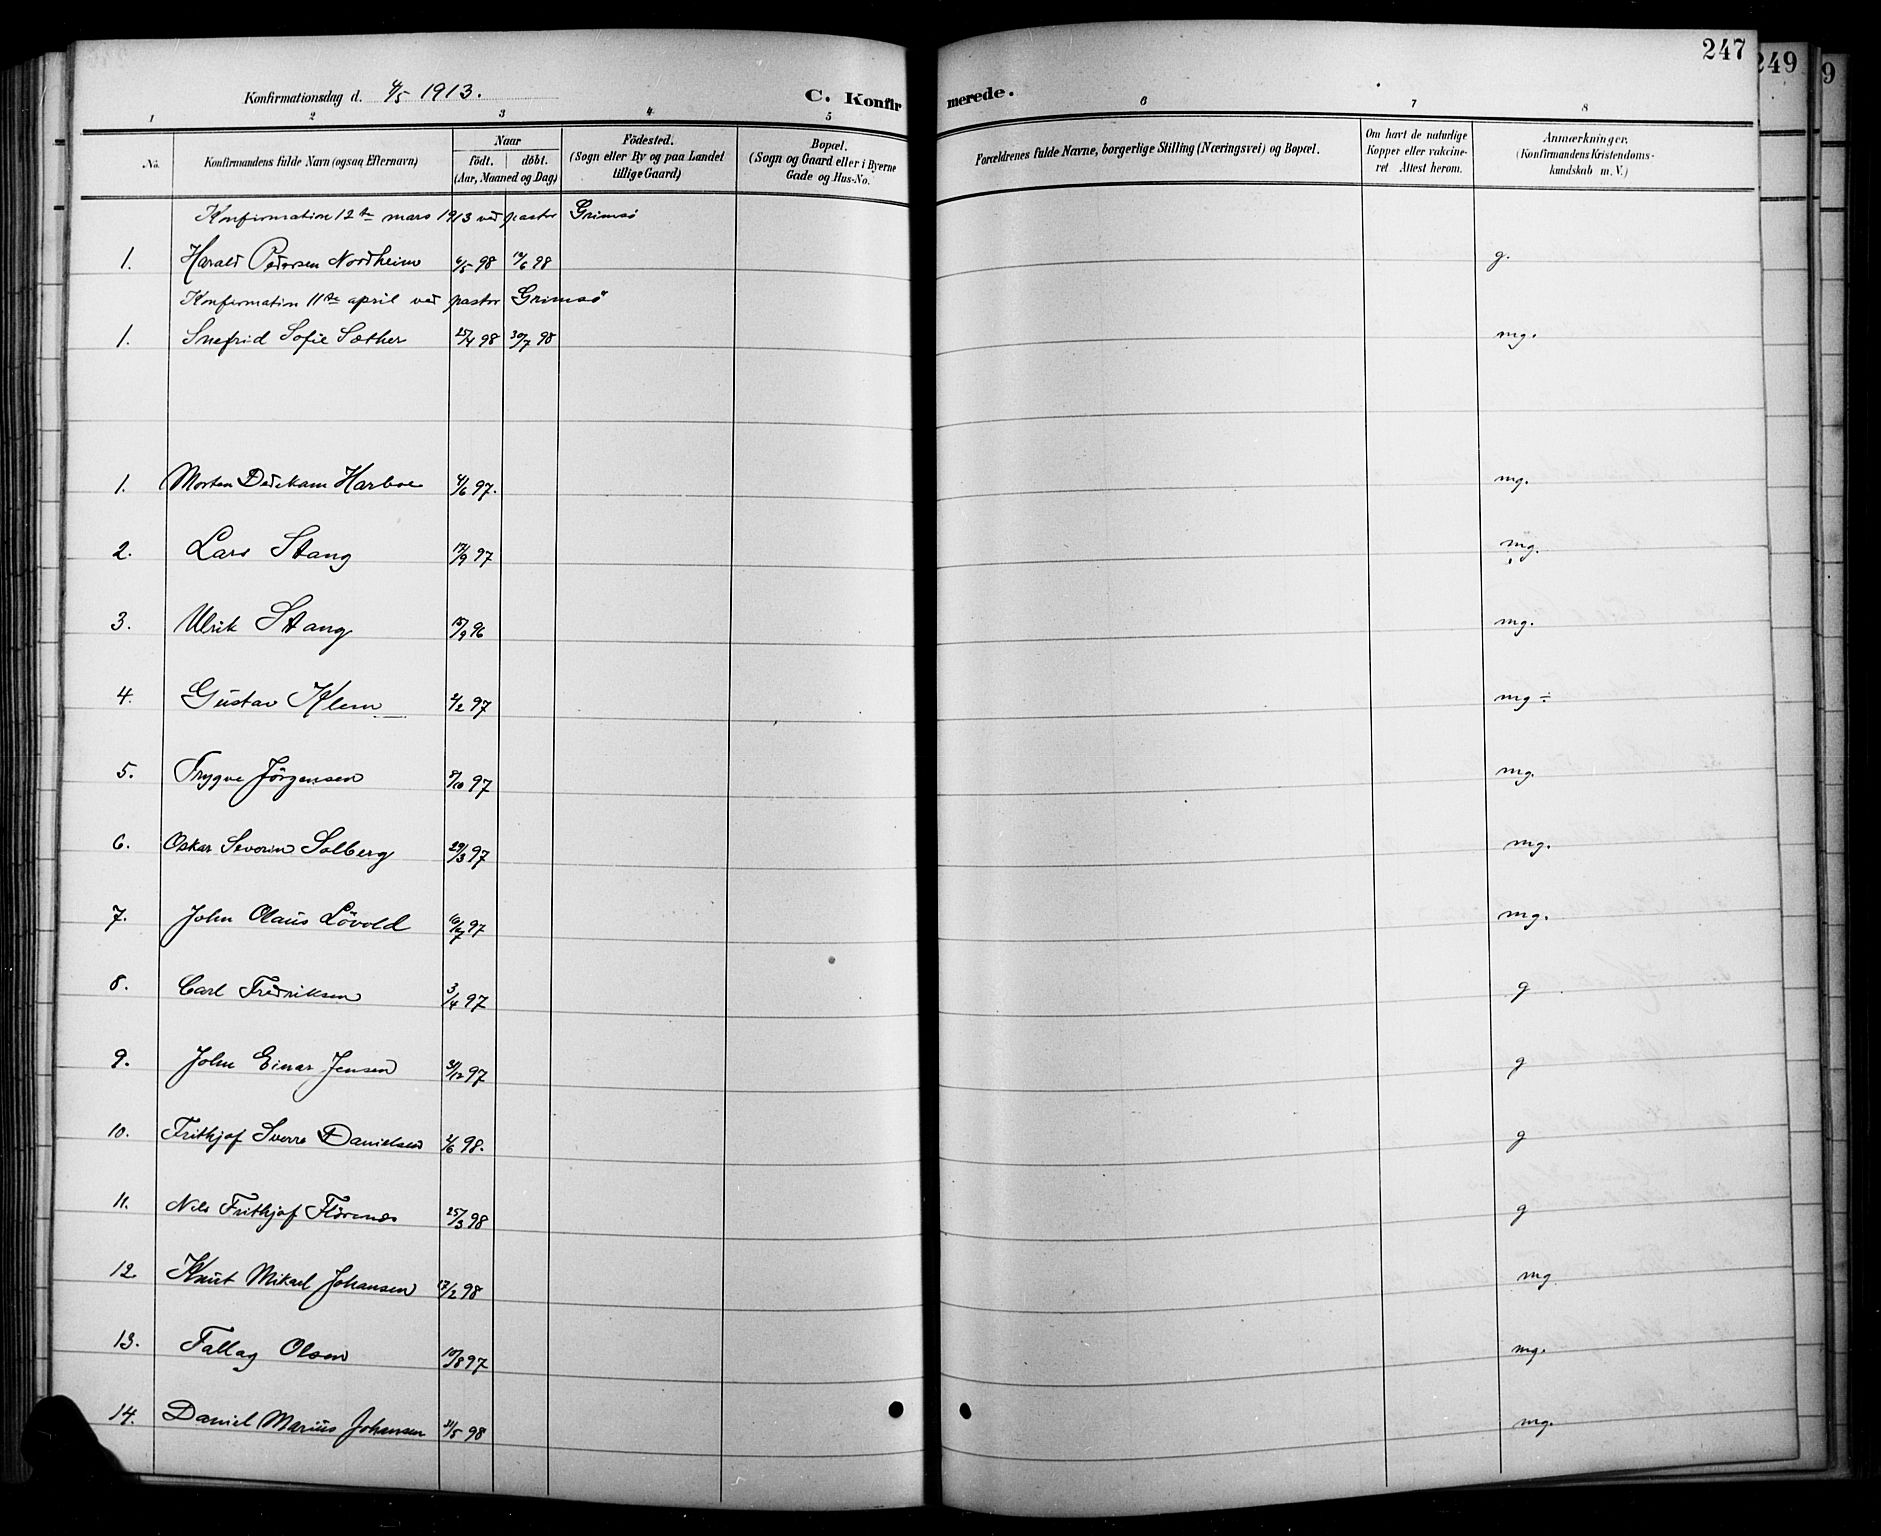 247
249
9
Konfirmationsdag d. 4/5 1913.
C. Konfirmerede.
1 2 3 4 5 6 7 8
No.
Konfirmandens fulde Navn (ogsaa Efternavn)
Naar
födt. döbt.
(Aar, Maaned og Dag)
Födested.
(Sogn eller By og paa Landet
tillige Gaard)
Bopæl.
(Sogn og Gaard eller i Byerne
Gade og Hus-No.
Forældrenes fulde Navne, borgerlige Stilling (Næringsvei) og Bopæl.
Om havt de naturlige
Kopper eller vakcine-
ret Attest herom.
Anmærkninger.
(Konfirmandens Kristendoms-
kundskab m. V.)
Konfirmation 12te mars 1913 ved pastor Grimsö
1. Harald Pedersen Nordheim 6/5 98 19/6 98 g.
Konfirmation 11te april ved pastor Grimsö
1. Snefrid Sofie Sæther 25/4 98 30/7 98 mg.
1. Morten Dedekam Harboe 4/6 97. mg.
2. Lars Stang 17/9 97 mg.
3. Ulrik Stang 15/9 96 mg.
4. Gustav Klem 2/2 97 mg ÷
5. Trygve Jörgensen 8/10 97 mg.
6. Oskar Severin Solberg 29/3 97 mg.
7. John Olaus Lövold 97 mg.
8. Carl Fredriksen 3/4 97 g
9. John Einar Jensen 31/12 97 g
10. Frithjof Sverre Danielsen 2/6 98. g
11. Nils Frithjof Florenes 25/3 98 g
12. Knut Mikael Johansen 17/2 98 mg
13. Fallag Olsen 10/8 97 mg.
14. Daniel Marius Johansen 31/5 98 mg.